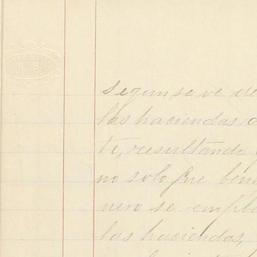 segun se ve de
las haciendas
te, resultando
no solo fue
nero se emple
las haciendas,